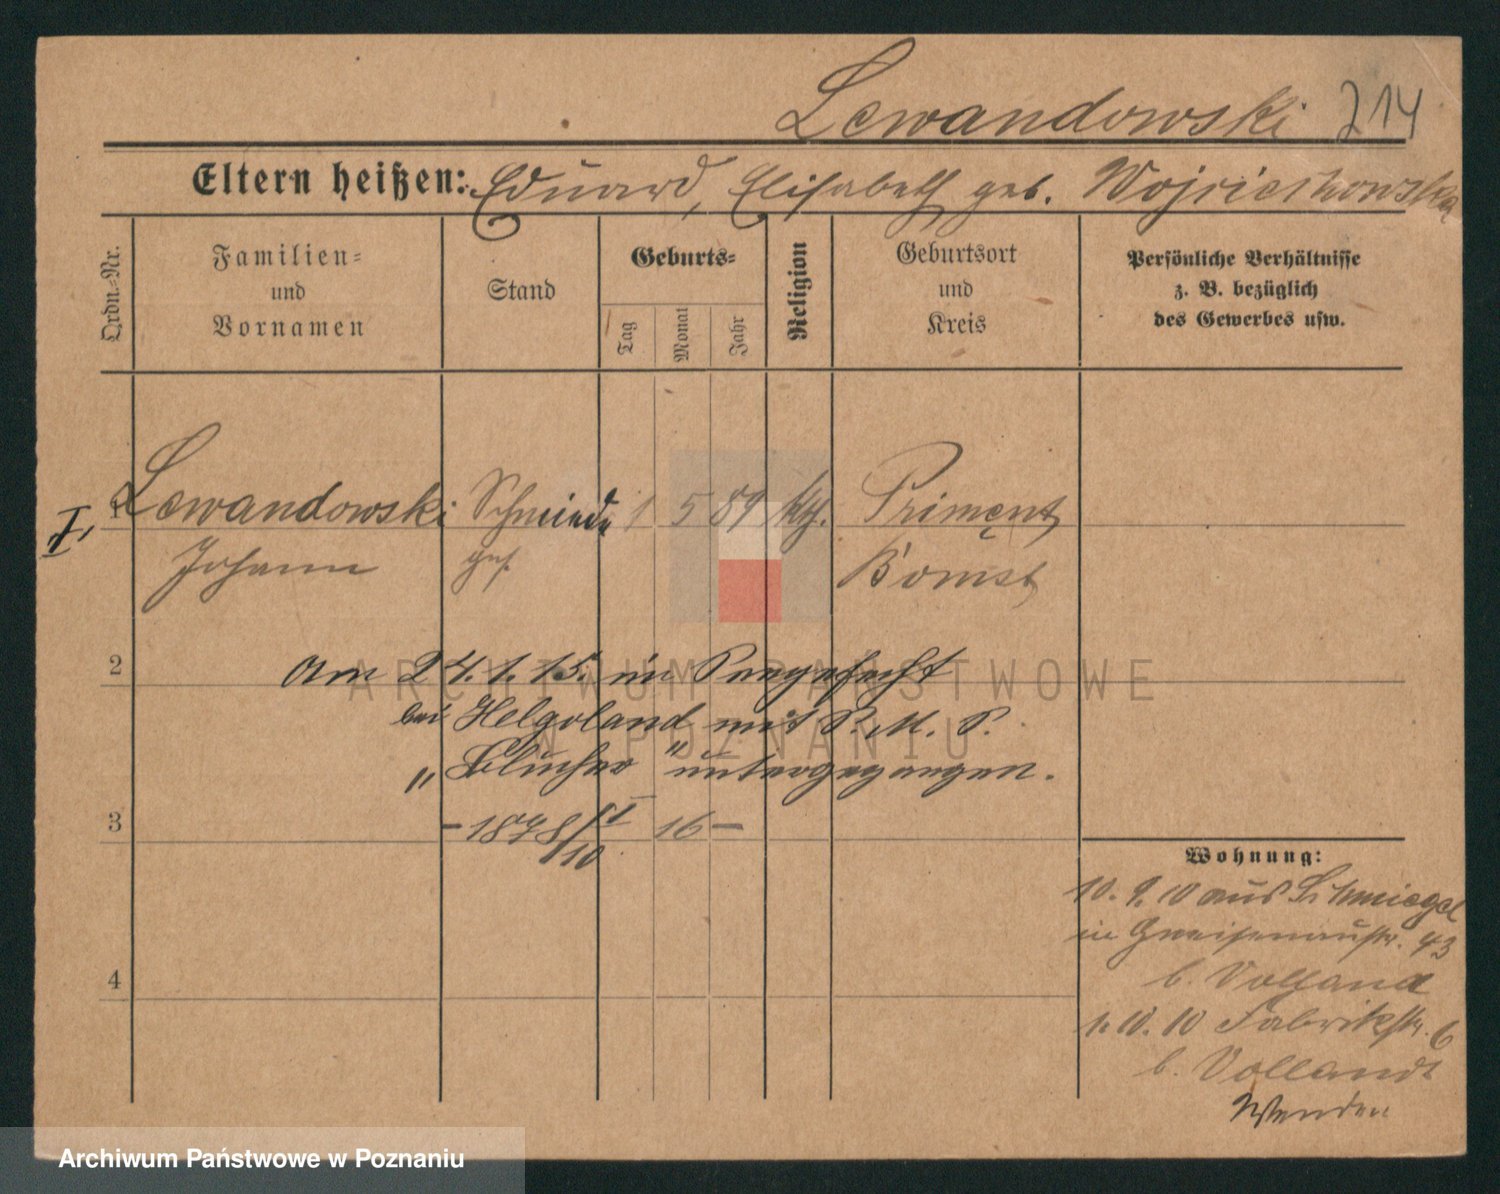 Lewandowski 214
Eltern heißen: Eduard, Elisabeth geb. Wojciechowska
Ordn.-Nr.
Familien-
und
Vornamen
Stand
Geburts-
Tag
Monat
Jahr
Religion
Geburtsort
und
Kreis
Persönliche Verhältnisse
z. B. bezüglich
des Gewerbes usw.
I. 1 Lewandowski Schmiede 1 5 89 kth. Priment
Johann ges. Bomst
2 Am 24.1.15. im Seegefecht
bei Helgoland mit S. M. S.
"Blücher" untergegangen.
3 - 1898/10 16 -
4
Wohnung:
10. 9. 10 aus Schmiegel
in Gneisenaustr. 43
b. Volland
1. 10. 10 Fabrikstr. 6
b. Vollandt
Wenden
ARCHIWUM PAŃSTWOWE
W POZNANIU
Archiwum Państwowe w Poznaniu